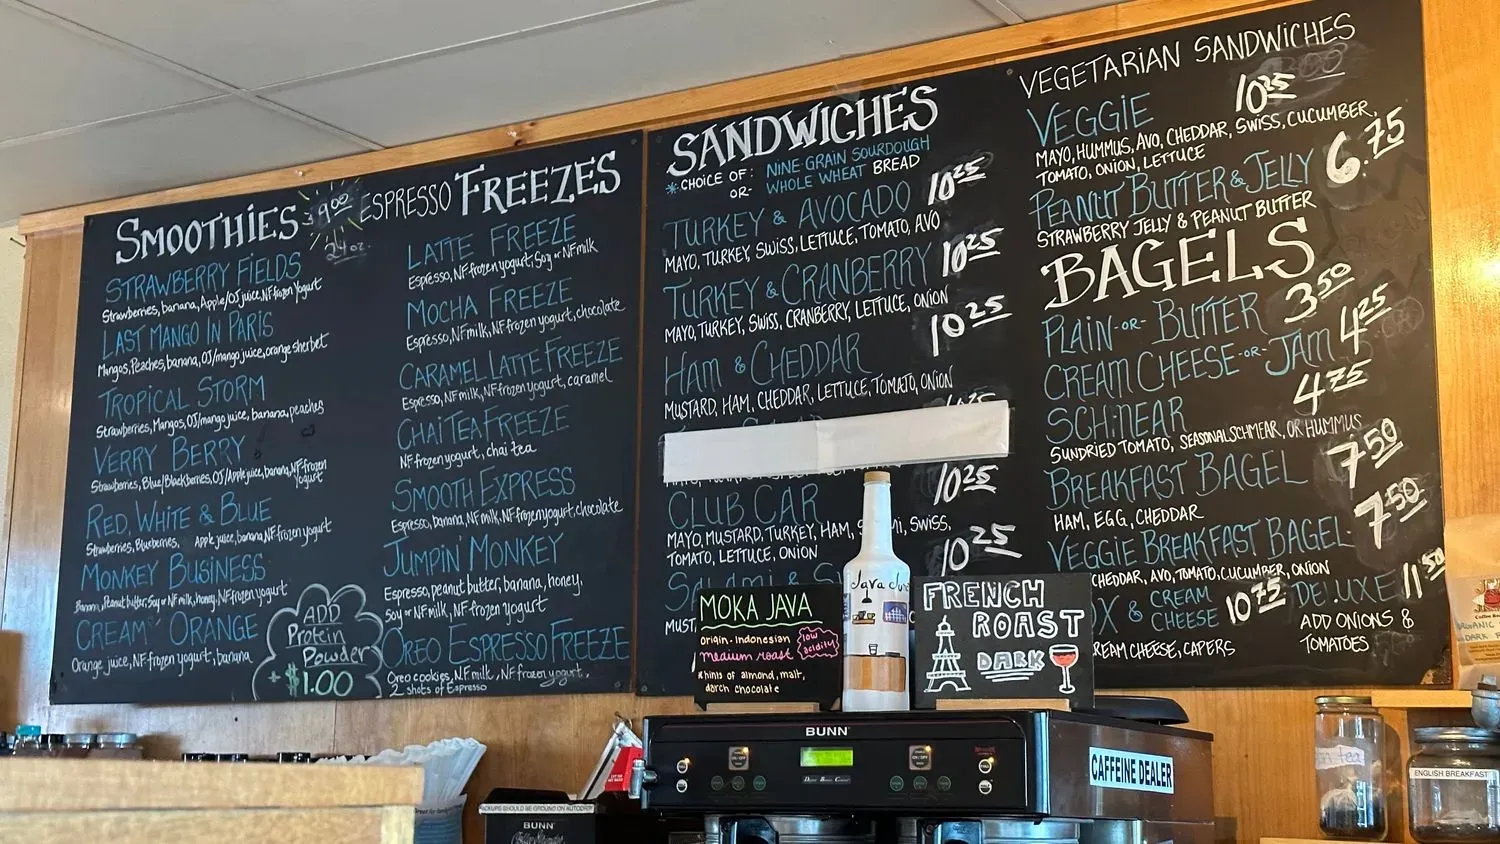 SMOOTHIES 9.00
24 oz.
STRAWBERRY FIELDS
Strawberries, banana, Apple/OJ juice, NF frozen Yogurt
LAST MANGO IN PARIS
Mangos, Peaches, banana, OJ/mango juice, orange sherbet
TROPICAL STORM
Strawberries, Mangos, OJ/mango juice, banana, peaches
VERRY BERRY
Strawberries, Blue/Blackberries, OJ/Apple juice, banana, NF frozen
Yogurt
RED, WHITE & BLUE
Strawberries, Blueberries, Apple juice, banana, NF frozen yogurt
MONKEY BUSINESS
Banana, Peanut butter, Soy or NF milk, honey, NF frozen yogurt
CREAM ORANGE
Orange juice, NF frozen yogurt, banana
ADD
Protein
Powder
+ $1.00
ESPRESSO FREEZES
LATTE FREEZE
Espresso, NF frozen yogurt, Soy or NF milk
MOCHA FREEZE
Espresso, NF milk, NF frozen yogurt, chocolate
CARAMEL LATTE FREEZE
Espresso, NF milk, NF frozen yogurt, caramel
CHAI TEA FREEZE
NF frozen yogurt, chai tea
SMOOTH EXPRESS
Espresso, banana, NF milk, NF frozen yogurt, chocolate
JUMPIN' MONKEY
Espresso, peanut butter, banana, honey,
Soy or NF milk, NF frozen yogurt
OREO ESPRESSO FREEZE
Oreo cookies, NF milk, NF frozen yogurt,
2 shots of Espresso
SANDWICHES
*CHOICE OF: NINE-GRAIN SOURDOUGH
-OR- WHOLE WHEAT BREAD
TURKEY & AVOCADO 10.25
MAYO, TURKEY, SWISS, LETTUCE, TOMATO, AVO
TURKEY & CRANBERRY 10.25
MAYO, TURKEY, SWISS, CRANBERRY, LETTUCE, ONION
HAM & CHEDDAR 10.25
MUSTARD, HAM, CHEDDAR, LETTUCE, TOMATO, ONION
CLUB CAR 10.25
MAYO, MUSTARD, TURKEY, HAM, SWISS,
TOMATO, LETTUCE, ONION
SALAMI & 10.25
VEGETARIAN SANDWICHES
VEGGIE 10.25
MAYO, HUMMUS, AVO, CHEDDAR, SWISS, CUCUMBER,
TOMATO, ONION, LETTUCE
PEANUT BUTTER & JELLY 6.75
STRAWBERRY JELLY & PEANUT BUTTER
BAGELS
PLAIN -OR- BUTTER 3.50
CREAM CHEESE -OR- JAM 4.25
SCHMEAR 4.75
SUNDRIED TOMATO, SEASONAL SCHMEAR, OR HUMMUS
BREAKFAST BAGEL 7.50
HAM, EGG, CHEDDAR
VEGGIE BREAKFAST BAGEL 7.50
CHEDDAR, AVO, TOMATO, CUCUMBER, ONION
& CREAM CHEESE 10.75 DELUXE 11.50
CREAM CHEESE, CAPERS
ADD ONIONS &
TOMATOES
MOKA JAVA
origin-Indonesian
medium roast
low
acidity
hints of almond, malt,
dark chocolate
Java
FRENCH
ROAST
DARK
BUNN
CAFFEINE DEALER
BUNN
ENGLISH BREAKFAST